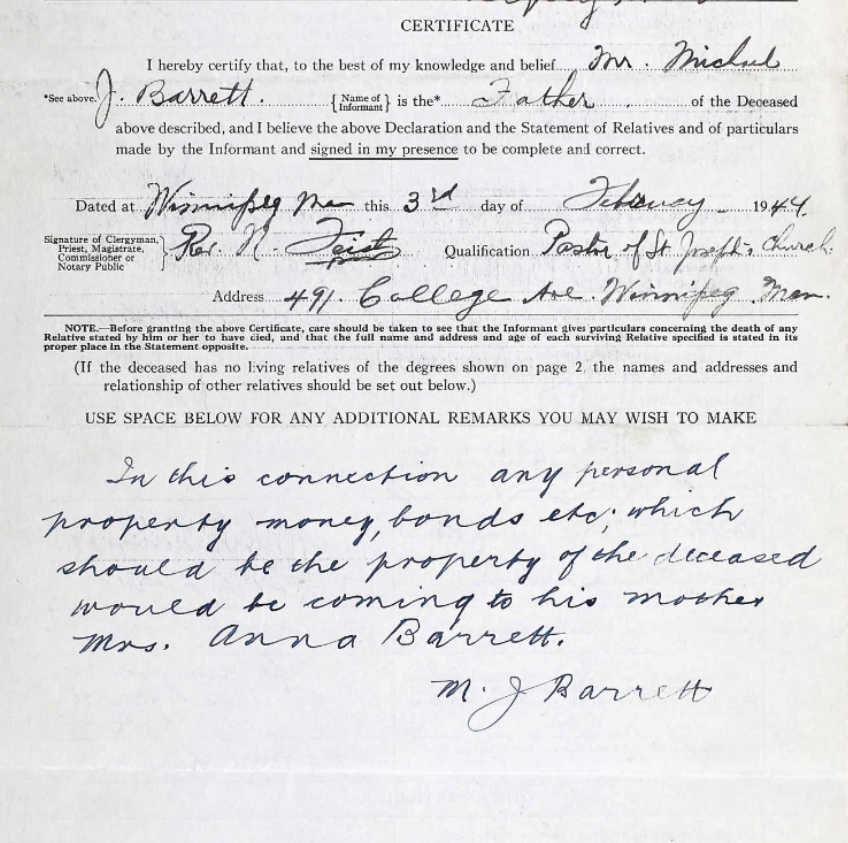 CERTIFICATE
I hereby certify that, to the best of my knowledge and belief Mr. Michael
*See above. J. Barrett. { Name of Informant } is the* Father of the Deceased
above described, and I believe the above Declaration and the Statement of Relatives and of particulars
made by the Informant and signed in my presence to be complete and correct.
Dated at Winnipeg Man this 3rd day of February 1944.
Signature of Clergyman, Priest, Magistrate, Commissioner or Notary Public } Rev. N. Feist Qualification Pastor of St Joseph's Church.
Address 491. College Ave. Winnipeg Man.
NOTE.—Before granting the above Certificate, care should be taken to see that the Informant gives particulars concerning the death of any
Relative stated by him or her to have died, and that the full name and address and age of each surviving Relative specified is stated in its
proper place in the Statement opposite.
(If the deceased has no living relatives of the degrees shown on page 2, the names and addresses and
relationship of other relatives should be set out below.)
USE SPACE BELOW FOR ANY ADDITIONAL REMARKS YOU MAY WISH TO MAKE
In this connection any personal
property money, bonds etc; which
should be the property of the deceased
would be coming to his mother
Mrs. Anna Barrett.
M. J Barrett